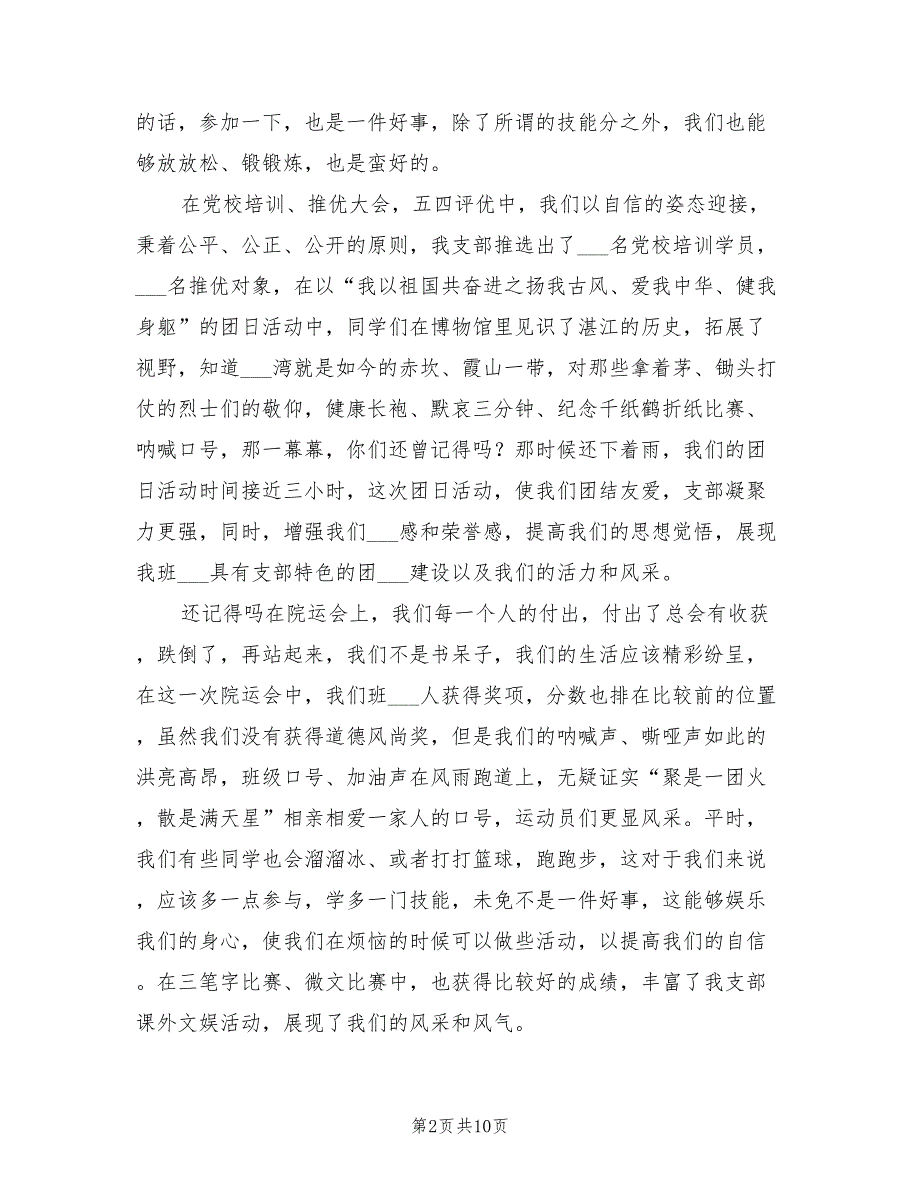 的话，参加一下，也是一件好事，除了所谓的技能分之外，我们也能
够放放松、锻锻炼，也是蛮好的。
在党校培训、推优大会，五四评优中，我们以自信的姿态迎接，
秉着公平、公正、公开的原则，我支部推选出了___名党校培训学员，
___名推优对象，在以“我以祖国共奋进之扬我古风、爱我中华、健我
身躯”的团日活动中，同学们在博物馆里见识了湛江的历史，拓展了
视野，知道___湾就是如今的赤坎、霞山一带，对那些拿着茅、锄头打
仗的烈士们的敬仰，健康长袍、默哀三分钟、纪念千纸鹤折纸比赛、
呐喊口号，那一幕幕，你们还曾记得吗？那时候还下着雨，我们的团
日活动时间接近三小时，这次团日活动，使我们团结友爱，支部凝聚
力更强，同时，增强我们___感和荣誉感，提高我们的思想觉悟，展现
我班___具有支部特色的团___建设以及我们的活力和风采。
还记得吗在院运会上，我们每一个人的付出，付出了总会有收获
，跌倒了，再站起来，我们不是书呆子，我们的生活应该精彩纷呈，
在这一次院运会中，我们班___人获得奖项，分数也排在比较前的位置
，虽然我们没有获得道德风尚奖，但是我们的呐喊声、嘶哑声如此的
洪亮高昂，班级口号、加油声在风雨跑道上，无疑证实“聚是一团火
，散是满天星”相亲相爱一家人的口号，运动员们更显风采。平时，
我们有些同学也会溜溜冰、或者打打篮球，跑跑步，这对于我们来说
，应该多一点参与，学多一门技能，未免不是一件好事，这能够娱乐
我们的身心，使我们在烦恼的时候可以做些活动，以提高我们的自信
。在三笔字比赛、微文比赛中，也获得比较好的成绩，丰富了我支部
课外文娱活动，展现了我们的风采和风气。
第2页共10页